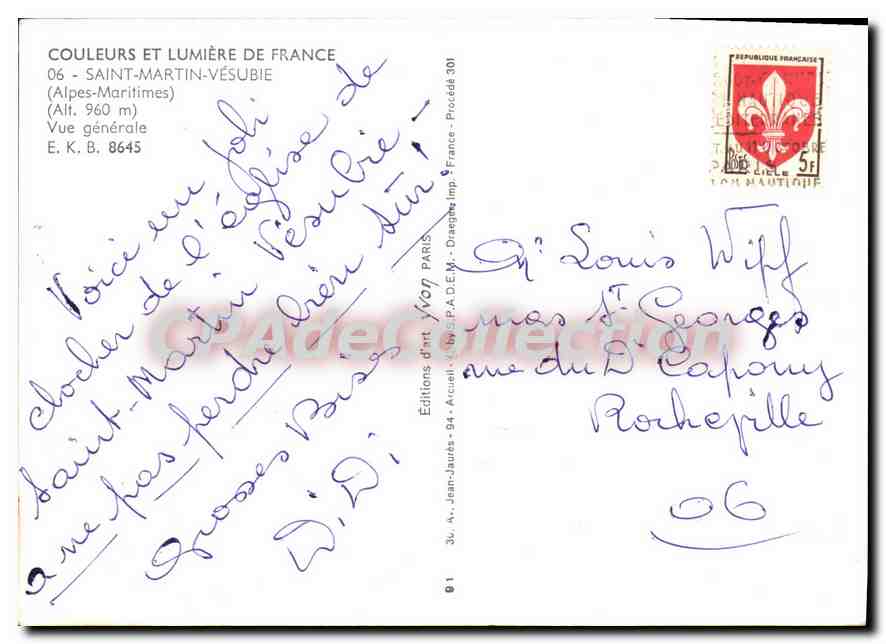 COULEURS ET LUMIÈRE DE FRANCE
06 - SAINT-MARTIN-VÉSUBIE
(Alpes-Maritimes)
(Alt. 960 m)
Vue générale
E. K. B. 8645
Voici un joli
clocher de l'église de
Saint-Martin Vésubie -
a ne pas perdre bien sûr!
Grosses Bises
Di Di
Éditions d'art YVON PARIS
36, Av. Jean-Jaurès - 94 - Arcueil - by S.P.A.D.E.M. - Draeger, Imp. - France - Procédé 301
91
REPUBLIQUE FRANÇAISE
POSTES 5F
NAUTIQUE
Mr Louis Wipf
mas St Georges
rue du Dr Capony
Rocheville
06
CPAdeCollection